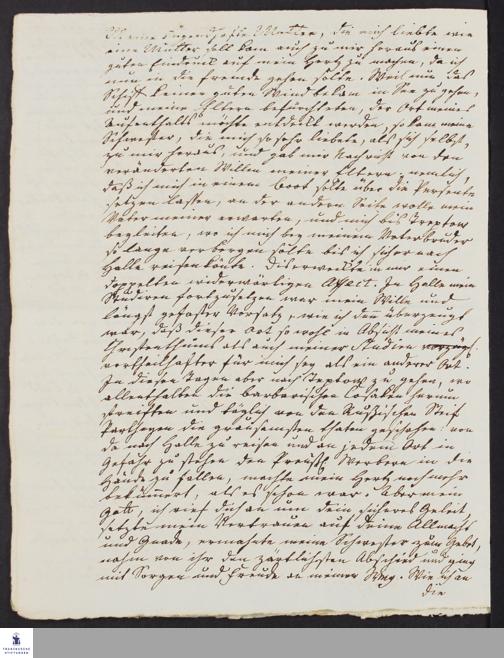 Meine tugendhafte Mutter, die mich liebte wie
eine Mutter soll kam auch zu mir heraus einen
guten Eindruck auf mein Hertz zu machen, da ich
nun in die Fremde gehen solte. Weil nun das
Schiff keinen guten Wind bekam in See zu gehen,
und meine Eltern befürchteten, der Ort meines
Aufenthalts möchte entdeckt werden, so kam meine
Schwester, die mich so sehr liebete, als sich selbst,
zu mir heraus, und gab mir Nachricht von den
veränderten Willen meiner Eltern, nemlich,
daß ich mich in einem Boot solte über die
setzen lassen, an der andern Seite wolle mein
Vater meiner erwarten, und mich bis Treptow
begleiten, wo ich mich bey meinem Vaterbruder
so lange verbergen solte bis ich sicher nach
Halle reisen könte. Dis erweckte in mir einen
doppelten widerwärtigen Affect. In Halle mein
Studiren fortzusetzen war mein Wille und
längst gefaster Vorsatz, wie ich den überzeugt
war, daß dieser Ort so wohl in Absicht meines
Christenthums als auch meiner Studien
vortheilhafter für mich sey als ein anderer Ort.
In diesen Tagen aber nach Treptow zu gehen, wo
allenthalben die barbarischen Cosaken herum
streiften und täglich von den Rußischen
die grausamsten thaten geschahen: von
da nach Halle zu reisen und an jedem Ort in
Gefahr zu stehen den Preuß. Werbern in die
Hände zu fallen, machte mein Hertz noch mehr
bekümmert, als es schon war. Aber mein
Gott, ich rief dich an um dein sicheres Geleit,
setzte mein Vertrauen auf deine Allmacht
und Gnade, ermahnte meine Schwester zum Gebet,
nahm von ihr den zärtlichsten Abschied und ging
mit Sorgen und Freude an meinen Weg. Wie ich an
die
FRANCKESCHE
STIFTUNGEN